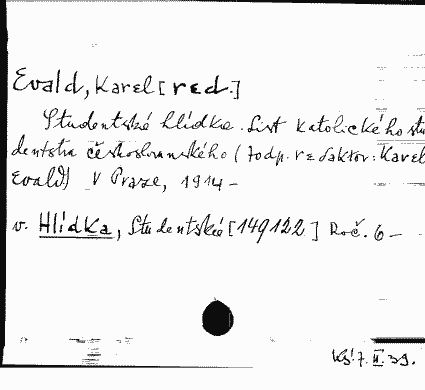 Evald, Karel [red.]
Studentské hlídka. List katolického stu
dentstva českoslovanského (zodp. redaktor: Karel
Evald) V Praze, 1914 –
v. Hlídka, Studentské [149122.] Roč. 6 –
Kš! 7. II. 39.